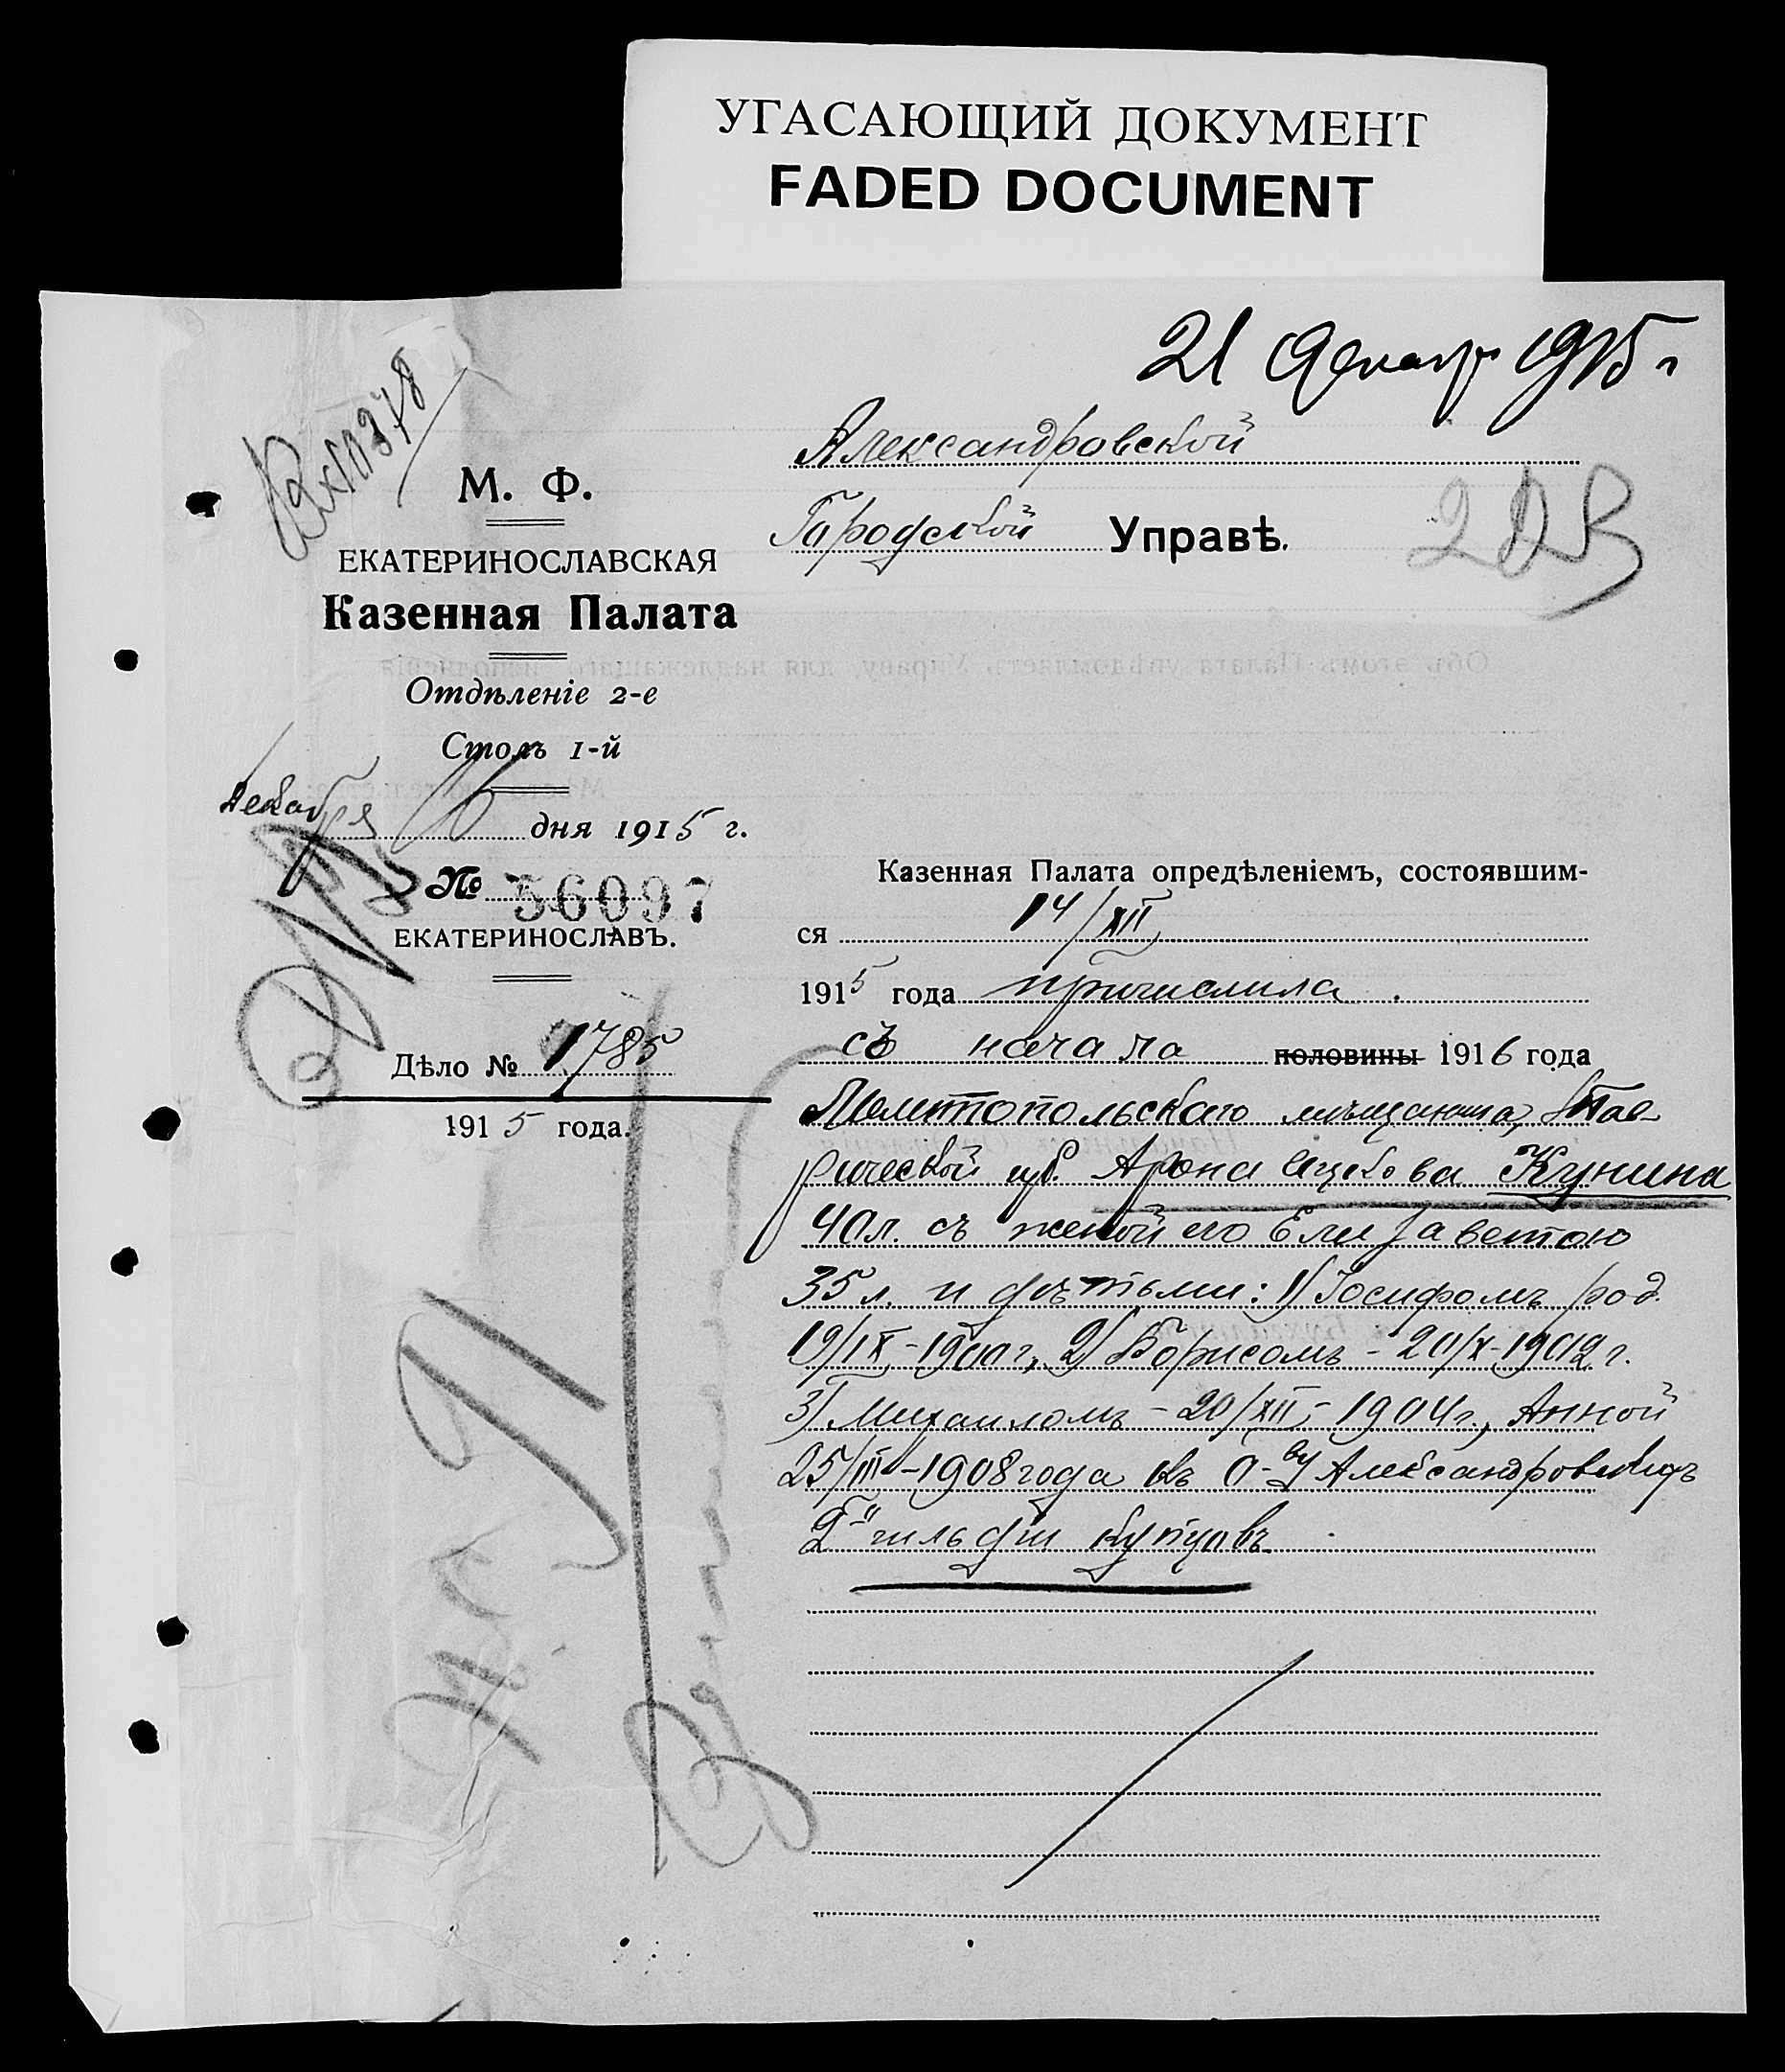 УГАСАЮЩИЙ ДОКУМЕНТ
FADED DOCUMENT
21 Декабр 1915 г
Вх 10378
Александровской
Городской Управѣ.
М. Ф.
ЕКАТЕРИНОСЛАВСКАЯ
Казенная Палата
Отдѣленіе 2-е
Столъ 1-й
Декабря 16 дня 1915 г.
№ 56097
ЕКАТЕРИНОСЛАВЪ.
Дѣло № 1785
1915 года.
Казенная Палата опредѣленіемъ, состоявшим-
ся 14/XII
1915 года причислила
съ начала половины 1916 года
Мелитопольскаго мѣщанина, Тав-
рической губ. Арона Ицкова Кунина
40 л. съ женой его Елизаветою
35 л. и дѣтьми: 1) Іосифомъ род.
19/IX-1900 г, 2) Борисомъ - 20/X-1902 г.
3) Михаиломъ - 20/XII-1904 г., Анной
25/III-1908 года въ Александровскихъ
2й гильдіи купцовъ